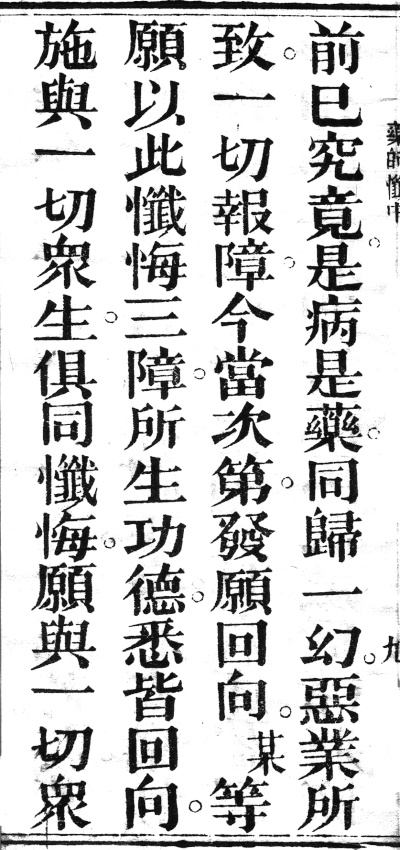 藥師懺中
九
前已究竟。是病是藥。同歸一幻。惡業所
致。一切報障。今當次第。發願回向。某等
願以此懺悔三障。所生功德。悉皆回向。
施與一切衆生。俱同懺悔。願與一切衆